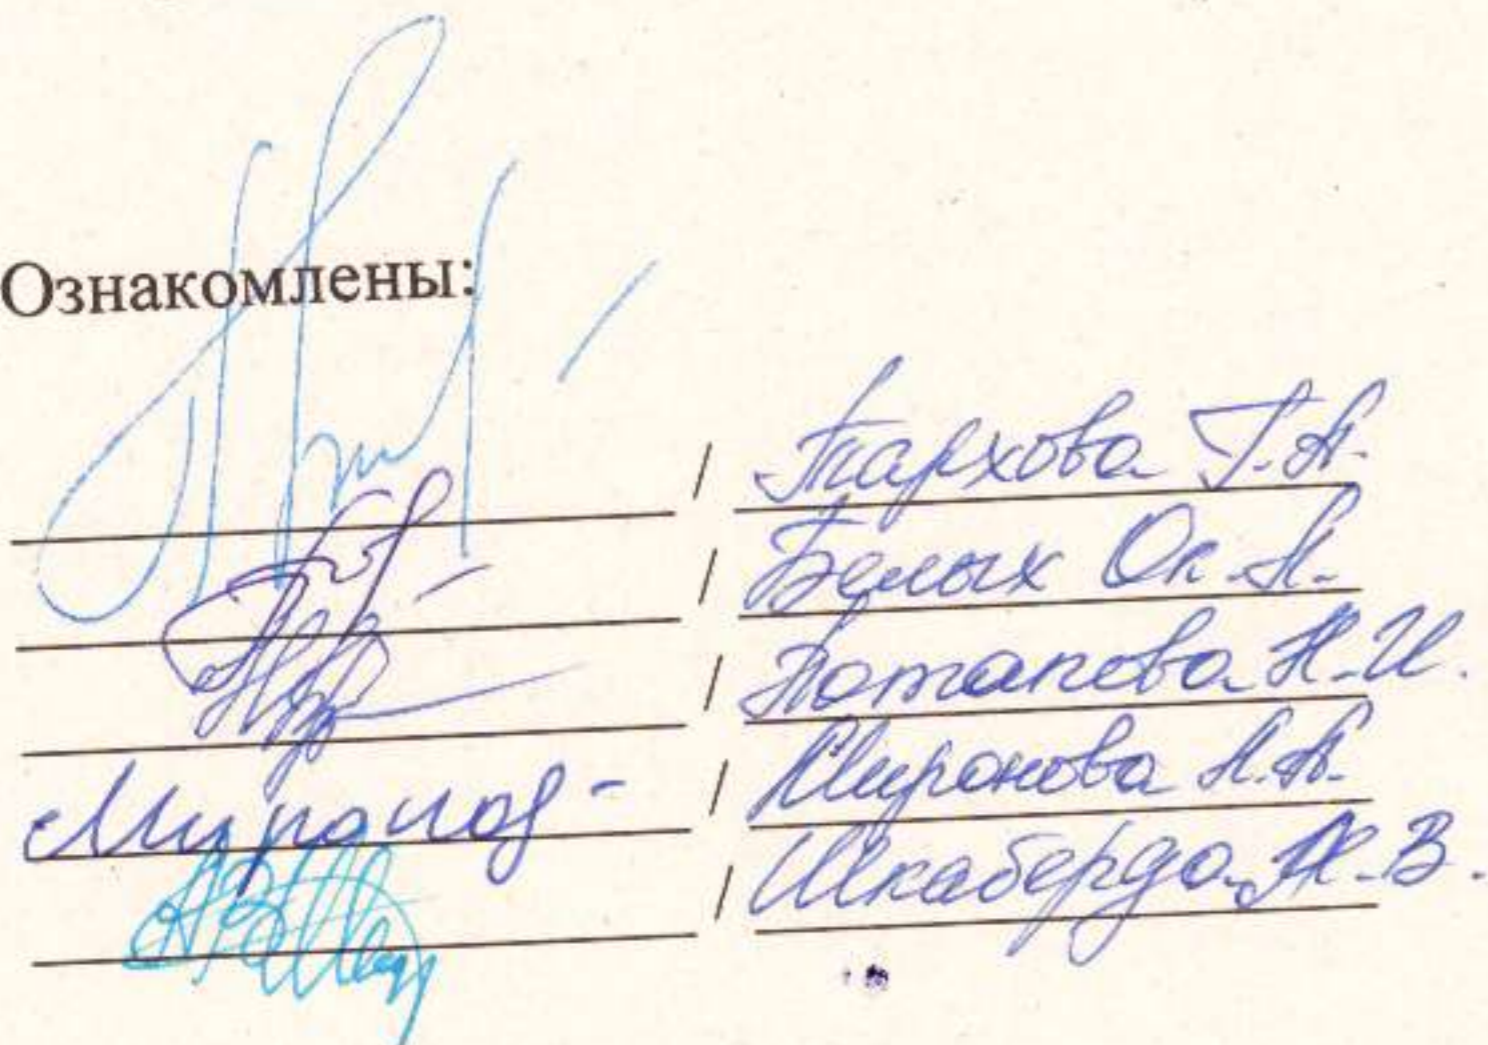 Ознакомлены:
/ Тархова Т.А.
/ Белых Ок.А.
/ Потапова Н.И.
/ Миронова А.А.
/ Шкабердо Ж.В.